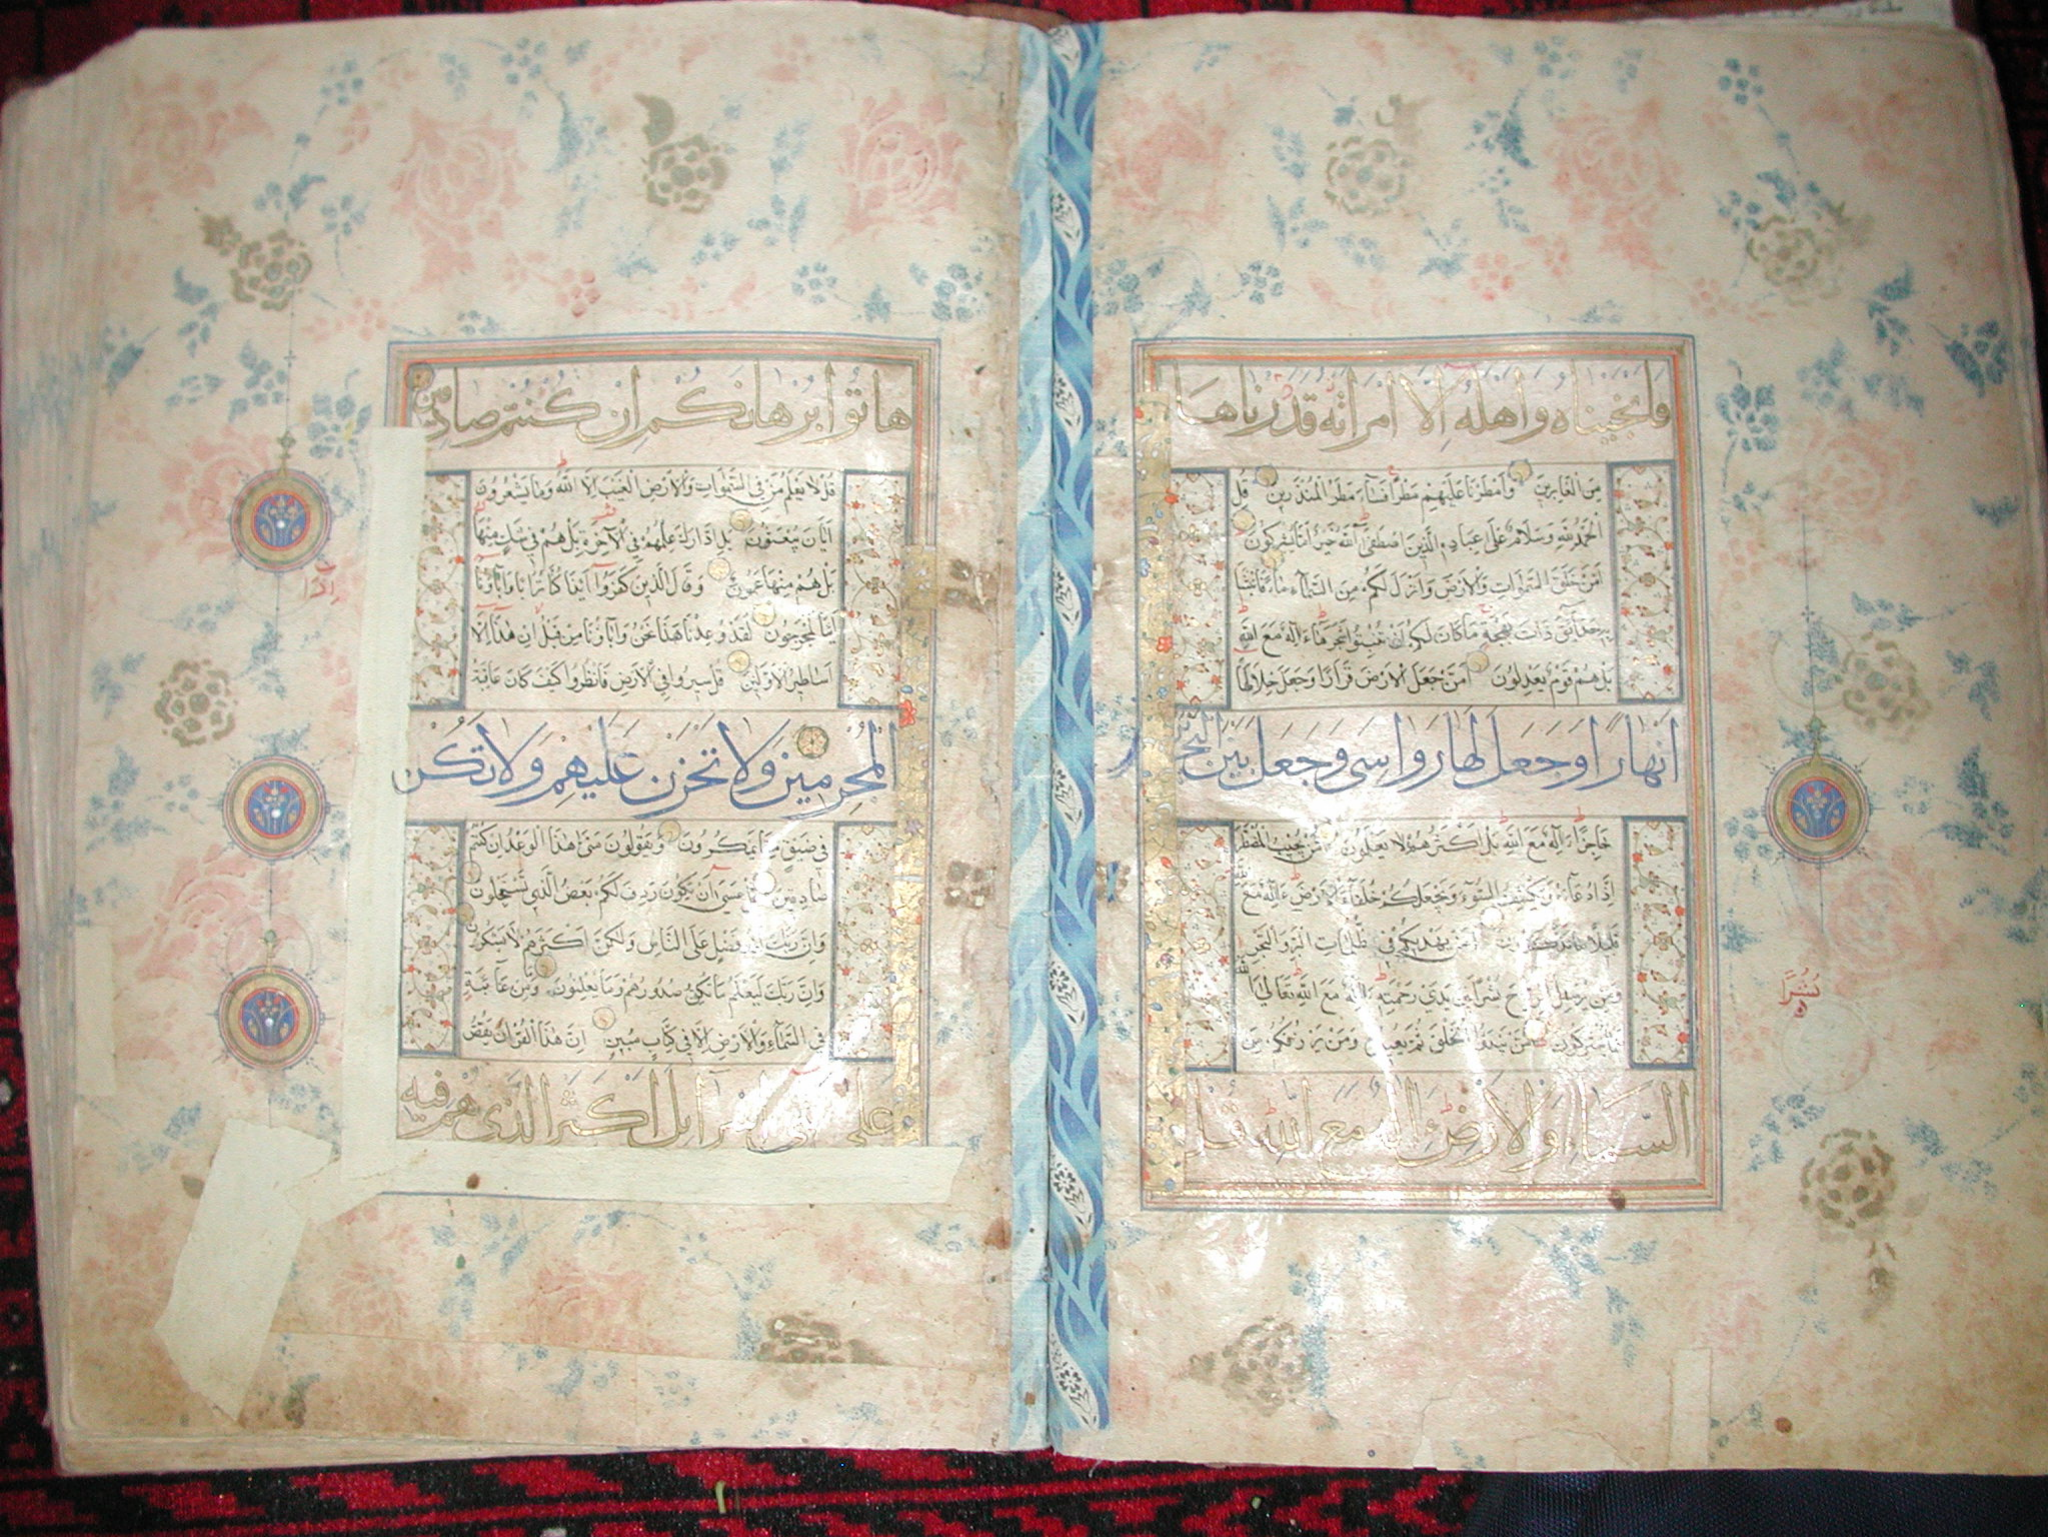 فانجيناه واهله الا امراته قدرناها
مِنَ الْغَابِرِينَ وَاَمْطَرْنَا عَلَيْهِمْ مَطَرًا فَسَآءَ مَطَرُ الْمُنْذَرِينَ قُلِ
الْحَمْدُ لِلّٰهِ وَسَلَامٌ عَلٰى عِبَادِهِ الَّذِينَ اصْطَفٰى آللّٰهُ خَيْرٌ اَمَّا يُشْرِكُونَ
اَمَّنْ خَلَقَ السَّمٰوَاتِ وَالْاَرْضَ وَاَنْزَلَ لَكُمْ مِنَ السَّمَآءِ مَآءً فَاَنْبَتْنَا
بِهِ حَدَآئِقَ ذَاتَ بَهْجَةٍ مَا كَانَ لَكُمْ اَنْ تُنْبِتُوا شَجَرَهَا ءَاِلٰهٌ مَعَ اللّٰهِ
بَلْ هُمْ قَوْمٌ يَعْدِلُونَ اَمَّنْ جَعَلَ الْاَرْضَ قَرَارًا وَجَعَلَ خِلَالَهَا
انهارا وجعل لها رواسى وجعل بين البحرين
حَاجِزًا ءَاِلٰهٌ مَعَ اللّٰهِ بَلْ اَكْثَرُهُمْ لَا يَعْلَمُونَ اَمَّنْ يُجِيبُ الْمُضْطَرَّ
اِذَا دَعَاهُ وَيَكْشِفُ السُّوٓءَ وَيَجْعَلُكُمْ خُلَفَآءَ الْاَرْضِ ءَاِلٰهٌ مَعَ اللّٰهِ
قَلِيلًا مَا تَذَكَّرُونَ اَمَّنْ يَهْدِيكُمْ فِي ظُلُمَاتِ الْبَرِّ وَالْبَحْرِ
وَمَنْ يُرْسِلُ الرِّيَاحَ بُشْرًا بَيْنَ يَدَيْ رَحْمَتِهِ ءَاِلٰهٌ مَعَ اللّٰهِ تَعَالَى اللّٰهُ
عَمَّا يُشْرِكُونَ اَمَّنْ يَبْدَؤُا الْخَلْقَ ثُمَّ يُعِيدُهُ وَمَنْ يَرْزُقُكُمْ مِنَ
السماء والارض ءاله مع الله قل
نُشُرًا
هاتوا برهانكم ان كنتم صادقين
قُلْ لَا يَعْلَمُ مَنْ فِي السَّمٰوَاتِ وَالْاَرْضِ الْغَيْبَ اِلَّا اللّٰهُ وَمَا يَشْعُرُونَ
اَيَّانَ يُبْعَثُونَ بَلِ ادَّارَكَ عِلْمُهُمْ فِي الْآخِرَةِ بَلْ هُمْ فِي شَكٍّ مِنْهَا
بَلْ هُمْ مِنْهَا عَمُونَ وَقَالَ الَّذِينَ كَفَرُوا اَئِذَا كُنَّا تُرَابًا وَآبَآؤُنَا
اَئِنَّا لَمُخْرَجُونَ لَقَدْ وُعِدْنَا هٰذَا نَحْنُ وَآبَآؤُنَا مِنْ قَبْلُ اِنْ هٰذَا اِلَّا
اَسَاطِيرُ الْاَوَّلِينَ قُلْ سِيرُوا فِي الْاَرْضِ فَانْظُرُوا كَيْفَ كَانَ عَاقِبَةُ
المجرمين ولا تحزن عليهم ولا تكن
فِي ضَيْقٍ مِمَّا يَمْكُرُونَ وَيَقُولُونَ مَتٰى هٰذَا الْوَعْدُ اِنْ كُنْتُمْ
صَادِقِينَ قُلْ عَسٰى اَنْ يَكُونَ رَدِفَ لَكُمْ بَعْضُ الَّذِي تَسْتَعْجِلُونَ
وَاِنَّ رَبَّكَ لَذُو فَضْلٍ عَلَى النَّاسِ وَلٰكِنَّ اَكْثَرَهُمْ لَا يَشْكُرُونَ
وَاِنَّ رَبَّكَ لَيَعْلَمُ مَا تُكِنُّ صُدُورُهُمْ وَمَا يُعْلِنُونَ وَمَا مِنْ غَآئِبَةٍ
فِي السَّمَآءِ وَالْاَرْضِ اِلَّا فِي كِتَابٍ مُبِينٍ اِنَّ هٰذَا الْقُرْاٰنَ يَقُصُّ
على بنى اسرائل اكثر الذى هم فيه